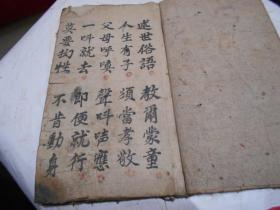 述世俗語 教爾蒙童
人生有子 須當孝敬
父母呼喚 聲叫声應
一叫就去 即便就行
莫要拗性 不昔動身